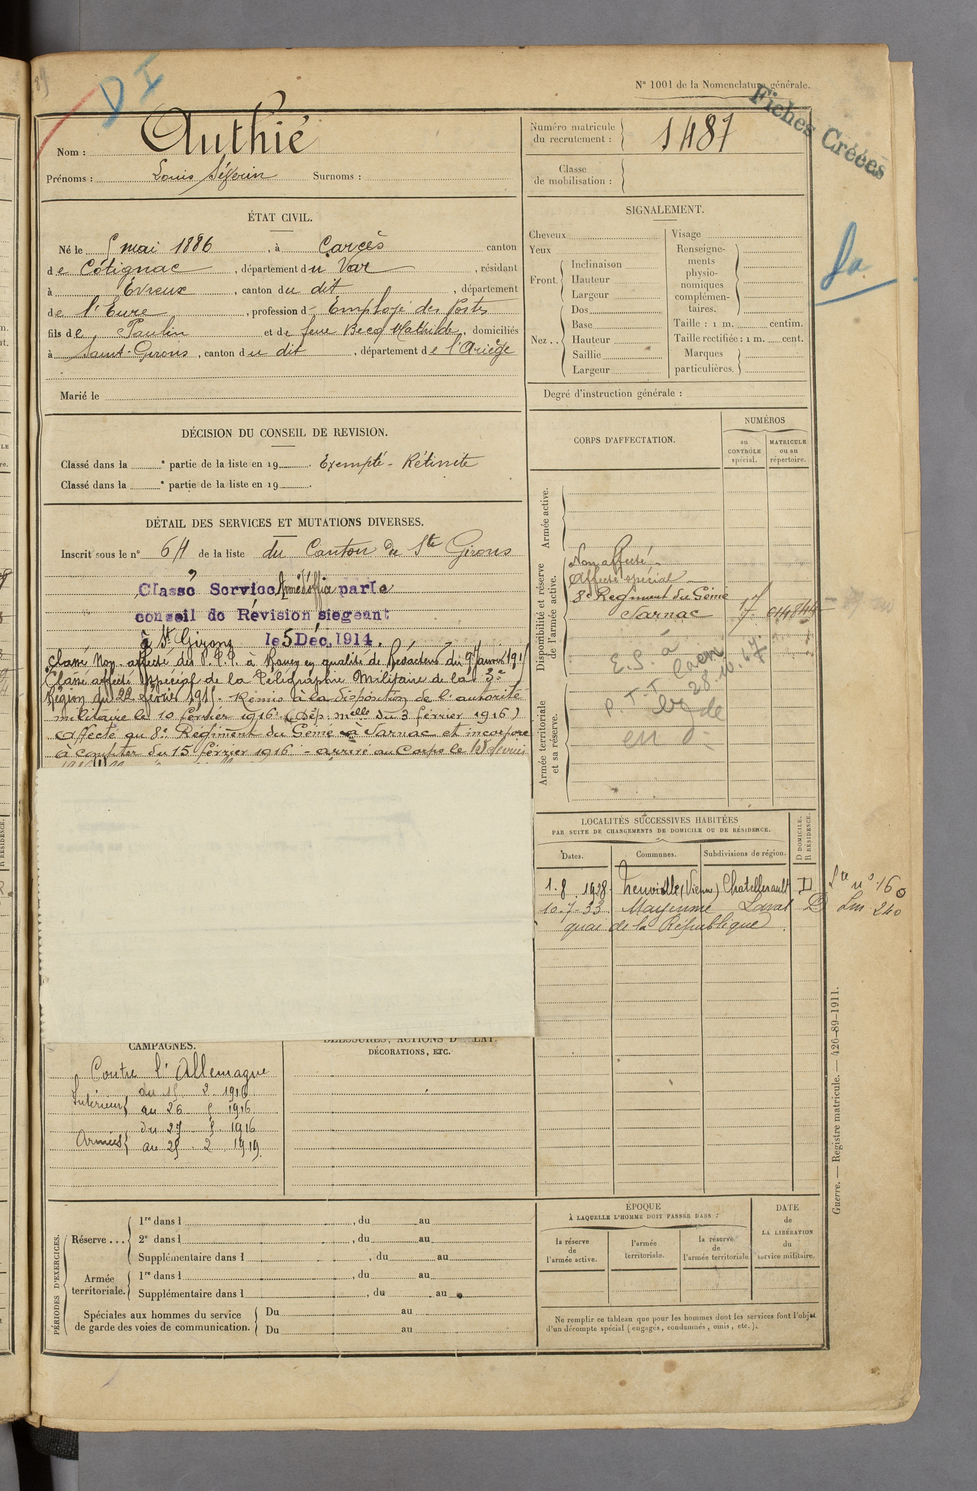 D I
N° 1001 de la Nomenclature générale.
Fiches Créées
Nom : Authié
Prénoms : Louis Séverin Surnoms :
Numéro matricule du recrutement : 1487
Classe de mobilisation :
ÉTAT CIVIL.
Né le 5 mai 1886, à Carcès canton
de Cotignac, département du Var, résidant
à Evreux, canton du dit, département
de l'Eure, profession d Employé des Postes
fils de Paulin et de feue Becq Mathilde, domiciliés
à Saint-Girons, canton du dit, département de l'Ariège
Marié le
SIGNALEMENT.
Cheveux
Yeux
Front.
Inclinaison
Hauteur
Largeur
Nez..
Dos
Base
Hauteur
Saillie
Largeur
Visage
Renseigne-
ments
physio-
nomiques
complémen-
taires.
Taille : 1 m. centim.
Taille rectifiée : 1 m. cent.
Marques
particulières.
Degré d'instruction générale :
DÉCISION DU CONSEIL DE REVISION.
Classé dans la e partie de la liste en 19 Exempté - Rétinite
Classé dans la e partie de la liste en 19 .
DÉTAIL DES SERVICES ET MUTATIONS DIVERSES.
Inscrit sous le n° 64 de la liste du Canton de St Girons
Classé Service par le
conseil de Révision siegeant
à St Girons le 5 Déc. 1914.
Classé Non affecté des P.T.T. à Rouen en qualité de Rédacteur du 9 Janvier 191
Classé affecté spécial de la Télégraphie Militaire de la 3e
Région du 22 février 1915. Remis à la disposition de l'autorité
militaire le 10 février 1916 (Dép. mlle du 3 février 1916)
Affecté au 8e Régiment du Génie à Jarnac et incorporé
à compter du 15 février 1916 - arrivé au Corps le
CORPS D'AFFECTATION.
NUMÉROS
au CONTRÔLE spécial.
MATRICULE ou au répertoire.
Armée active.
Disponibilité et réserve de l'armée active.
Non affecté
Affecté spécial
8e Régiment du Génie
Jarnac
E.S. à Caen
P.T.T.
28.10.
Armée territoriale et sa réserve.
LOCALITÉS SUCCESSIVES HABITÉES
PAR SUITE DE CHANGEMENTS DE DOMICILE OU DE RÉSIDENCE.
Dates. Communes. Subdivisions de région. D DOMICILE. R RÉSIDENCE.
1.8.1928 Neuville (Vienne) Chatellerault D
10-7-33 Mayenne Laval D
quai de la République
CAMPAGNES.
DÉCORATIONS, ETC.
Contre l'Allemagne
Intérieur du 15 2 1916
au 26 5 1916
Armées du 27 5 1916
au 25 2 1919
PÉRIODES D'EXERCICES.
Réserve...
1re dans l , du au
2e dans l , du au
Supplémentaire dans l , du au
Armée territoriale.
1re dans l , du au
Supplémentaire dans l , du au
Spéciales aux hommes du service
de garde des voies de communication.
Du au
Du au
ÉPOQUE
À LAQUELLE L'HOMME DOIT PASSER DANS :
la réserve de l'armée active.
l'armée territoriale.
la réserve de l'armée territoriale.
DATE de LA LIBÉRATION du service militaire.
Ne remplir ce tableau que pour les hommes dont les services font l'objet
d'un décompte spécial (engagés, condamnés, omis, etc.).
Guerre. — Registre matricule. — 426-89-1911.